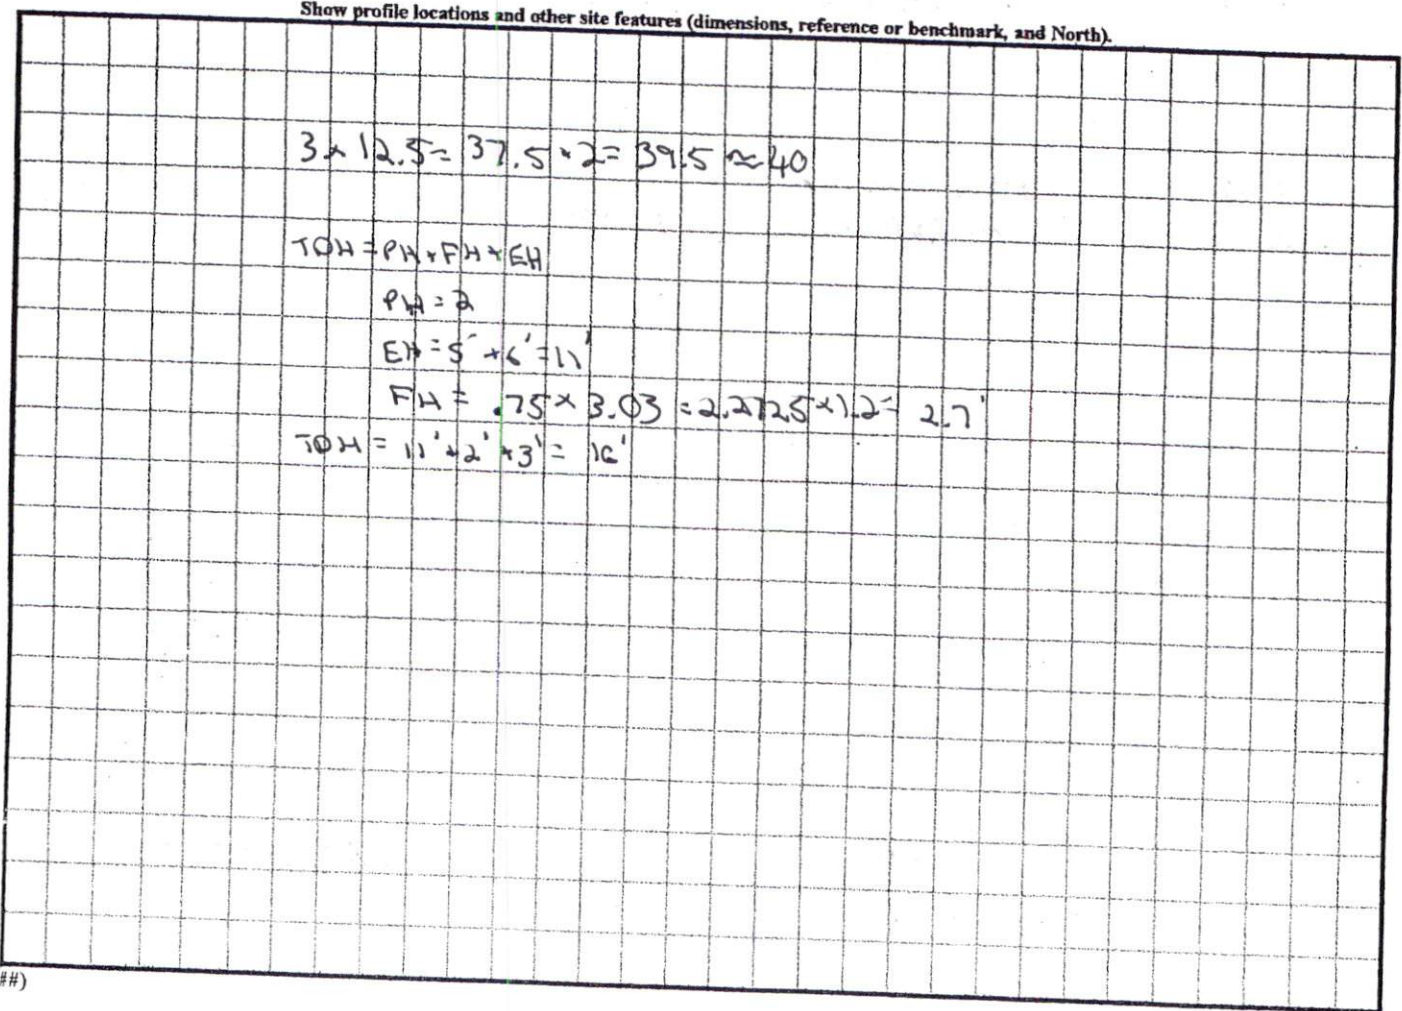 Show profile locations and other site features (dimensions, reference or benchmark, and North).
3 x 12.5 = 37.5 + 2 = 39.5 ≈ 40
TDH = PH + FH + EH
PH = 2
EH = 5' + 6' = 11'
FH = .75 x 3.03 = 2.2725 x 1.2 = 2.7'
TDH = 11' + 2' + 3' = 16'
##)